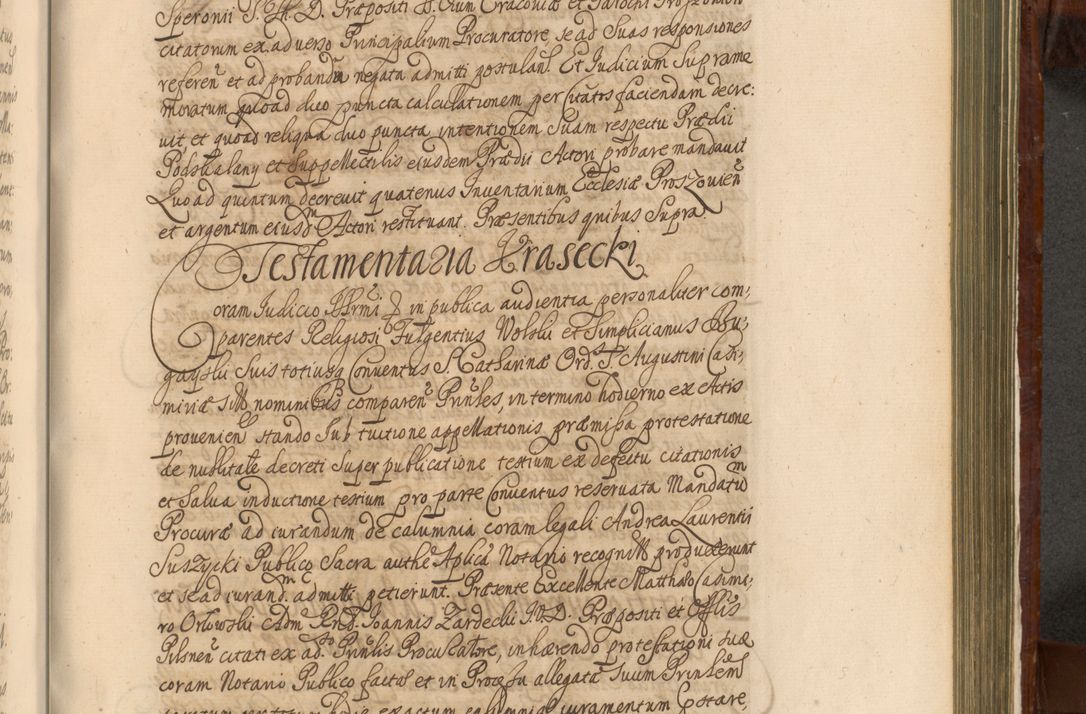 Speronii J. U. D. Præpositi
citatorum ex adverso Principalium Procuratore, se ad Suas responsiones
referen̄ et ad probandm̄ negata admitti postulan̄. Et Judicium Suprame
moratum quoad duo puncta calculationem per Citatos faciendam decre:
vit et quoad reliqua duo puncta, intentionem Suam respectu Prædii
Podskalany et Suppellectilis eiusdem Prædii Actori probare mandavit
Quo ad quintum decrevit quatenus Inventarium Ecclesiæ Proszovien̄
et argentum eiusdm̄ Actori restituant. Præsentibus quibus Supra.
Testamentaria Krasecki
Coram Judicio in publica audientia personaliter com,
parentes Religiosi Fulgentius Wolski et Simplicianus
Suis totiusq Conventus S. Catharinæ Ord. S. Augustini Casi,
miriæ nominibus comparen̄ Prin̄les, in termino hodierno ex Actis
provenien̄ stando Sub tuitione appellationis, præmissa protestatione
de nullitate decreti Super publicatione testium ex defectu citationis
et Salva inductione testium pro parte Conventus reservata Mandatum
Procuræ ad iurandum de calumnia coram legali Andrea Laurentii
Suszycki Publico Sacra authe Aplicā Notario recognitt produxerunt
et se ad iurandm̄ admitti petierunt. Præsente Excellente Matthæo Casimi,
ro Orłowski Adm̄ Rnd̄. Joannis Zardecki J.U.D. Præpositi et Offlis
Pilsnen̄ citati ex ado Prin̄lis Procuratore, inhærendo protestationi suæ
coram Notario Publico factæ et in Processu allegatæ Suum Prin̄lem
iuramentum